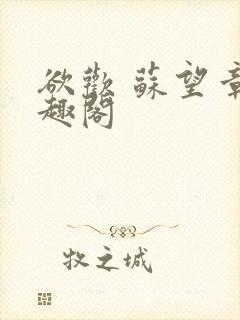 欲歡 蘇望章
趣閣
牧之城